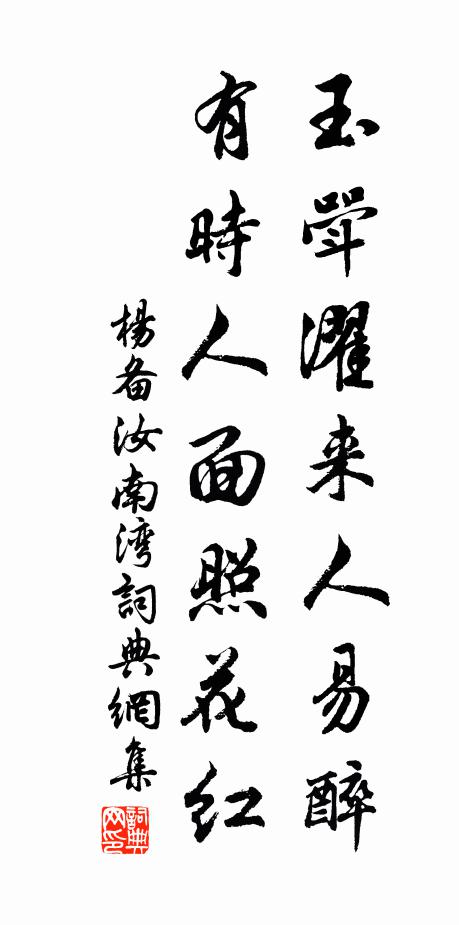 玉斝濯来人易醉
有時人面照花红
楊备汝南湾詞典網集
詞典网印